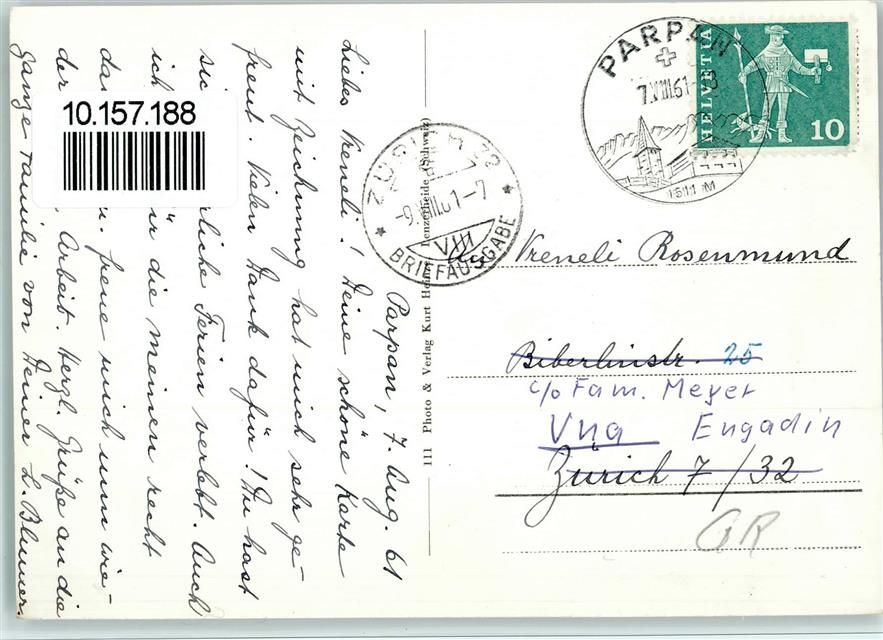 10.157.188
PARPAN
7.VIII.61
1511 M
HELVETIA
10
ZÜRICH 32
-9.VIII.61-7
VIII
BRIEFAUSGABE
111 Photo & Verlag Kurt Lenzerheide (Schweiz)
Parpan, 7. Aug. 61
Liebes Vreneli! Deine schöne Karte
mit Zeichnung hat mich sehr ge-
freut. Vielen Dank dafür! Du hast
rliche Ferien verlebt. Auch
ich die meinen recht
freue mich nun wie-
der Arbeit. Hergl. Grüße an die
ganze Familie von Deiner L. Blumer.
An Vreneli Rosenmund
Biberlinstr. 25
c/o Fam. Meyer
Vna Engadin
Zürich 7/32
GR